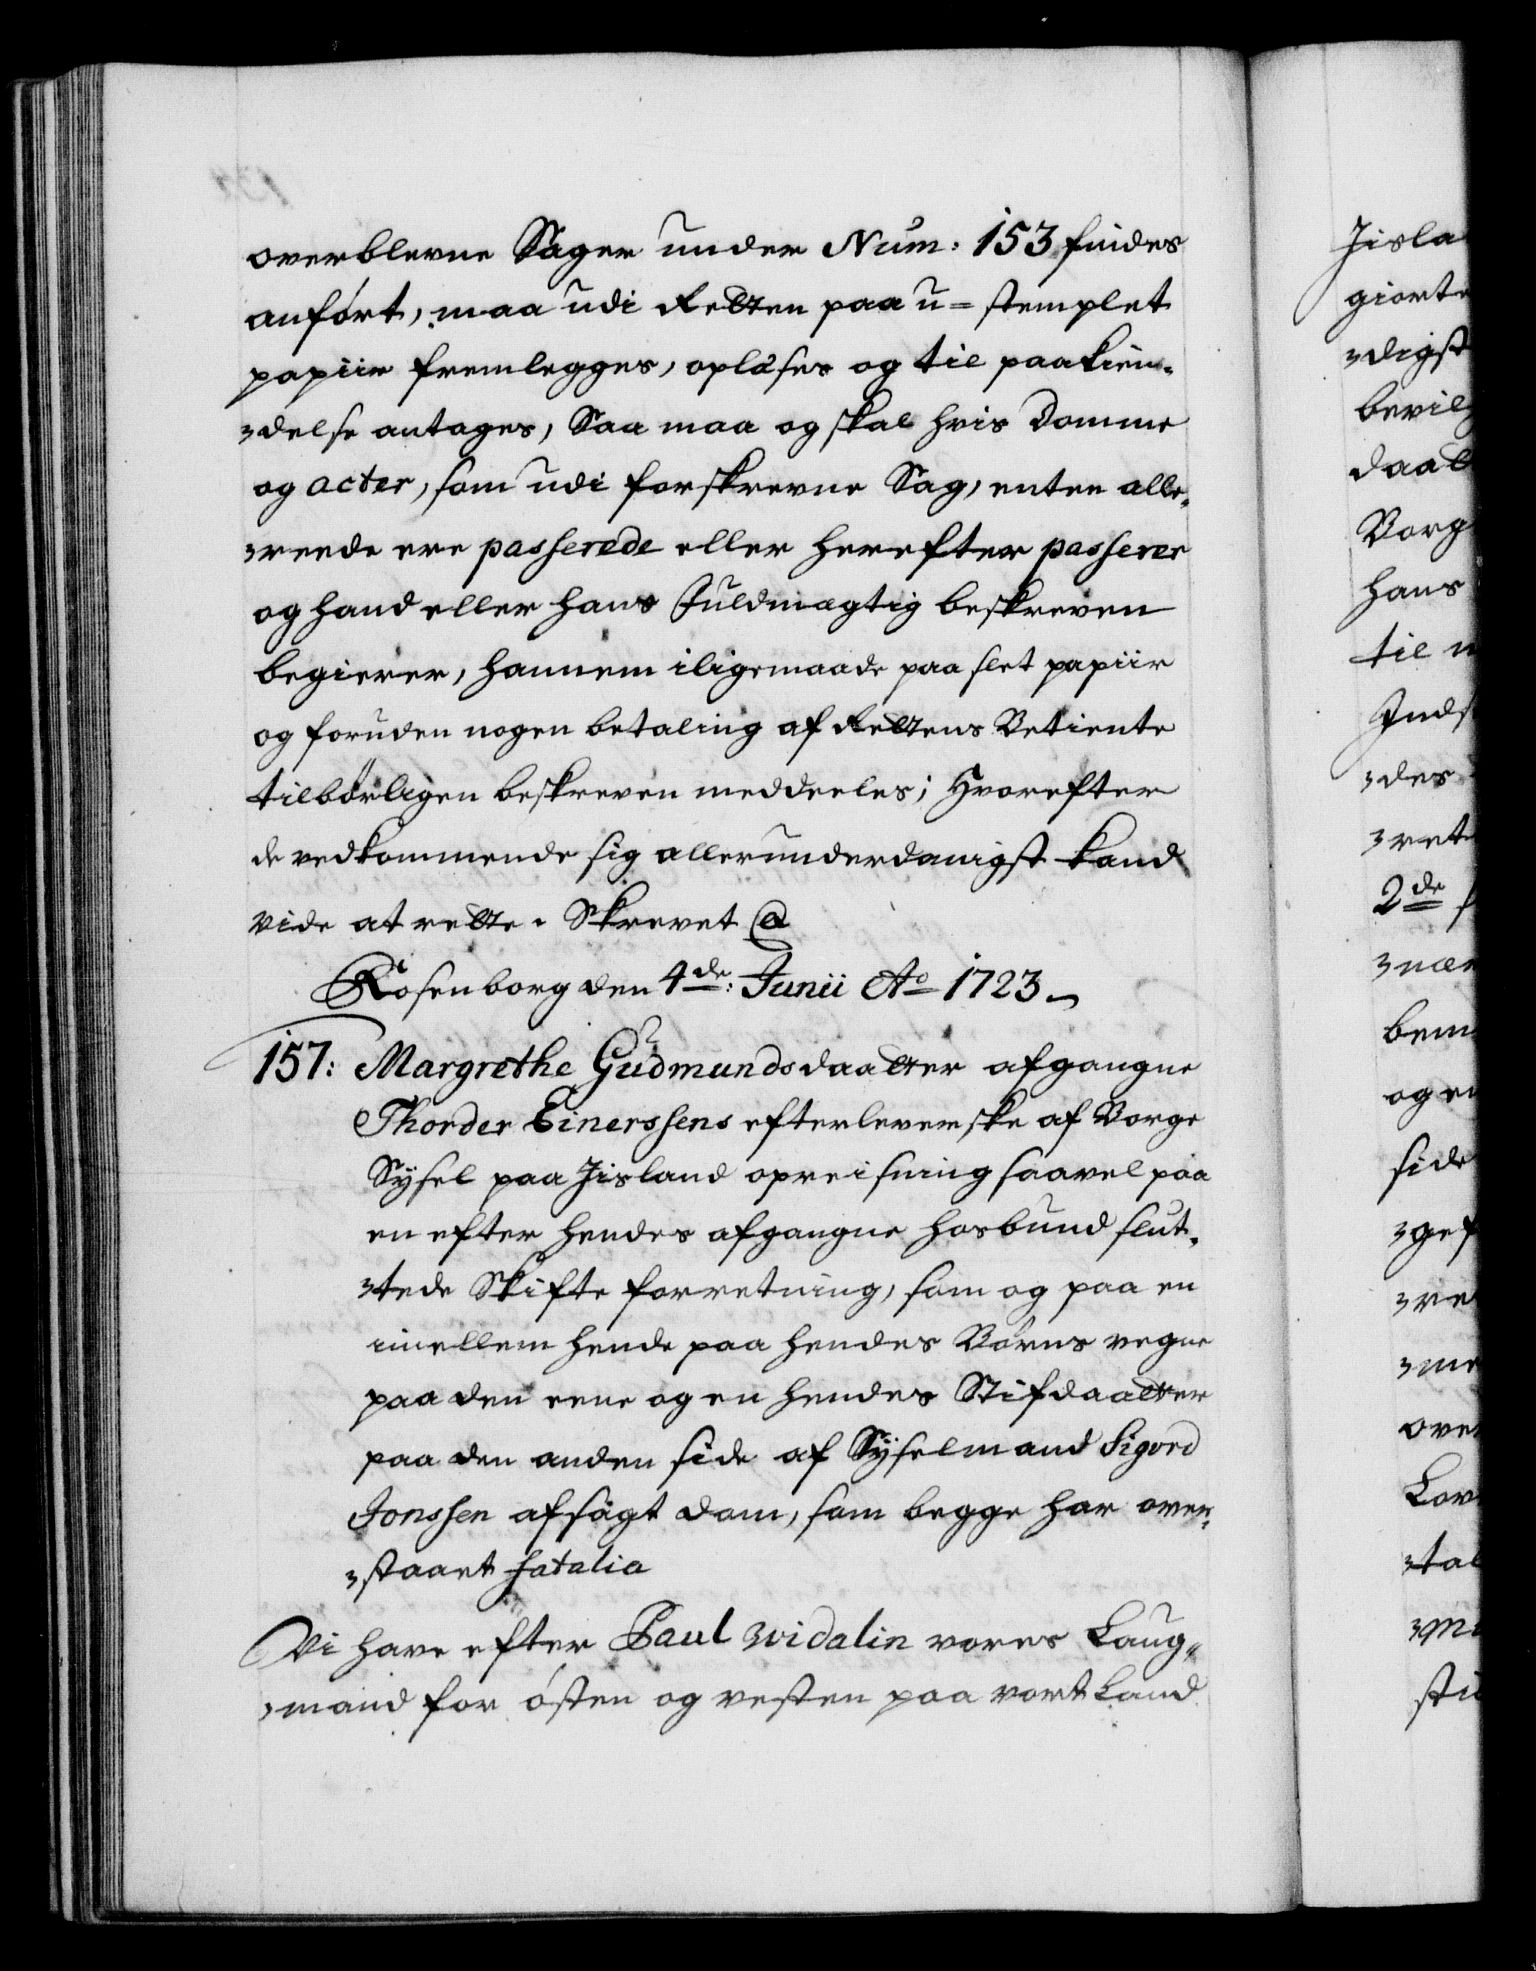 overblevne Sager under Num: 153 findes
anført, maa udi Retten paa u=stemplet
papiir fremlegges, oplæses og til paakien-
delse antages, Saa maa og skal hvis Domme
og acter, som udi forskrevne Sag, enten alle-
reede ere passerede eller herefter passerer
og hand eller hans Fuldmægtig beskreven
begierer, hannem iligemaade paa slet papiir
og foruden nogen betaling af Rettens Betiente
tilbørligen beskreven meddeeles; Hvorefter
de vedkommende sig allerunderdanigst kand
vide at rette. Skrevet @
Rosenborg den 4de: Junii Ao 1723
157: Margrethe Gudmundsdaatter afgangne
Thorder Einerssens efterleverske af Borge
Sysel paa Jisland opreisning saavel paa
en efter hendes afgangne Hosbund slut-
tede Skifte forretning, som og paa en
imellem hende paa hendes Børns vegne
paa den eene og en hendes Stifdaatter
paa den anden side af Sysselmand Sigvord
Jonssen afsagt dom, som begge har over-
staaet fatalia
Vi have efter Paul Widalin vores Laug-
mand for østen og vesten paa vort Land
Jisla
giorte
digst
bevilg
daatt
Borg
hans
til
Inds
des
ret
2de
bem
og en
side
gef
re
me
over
Lov
tal